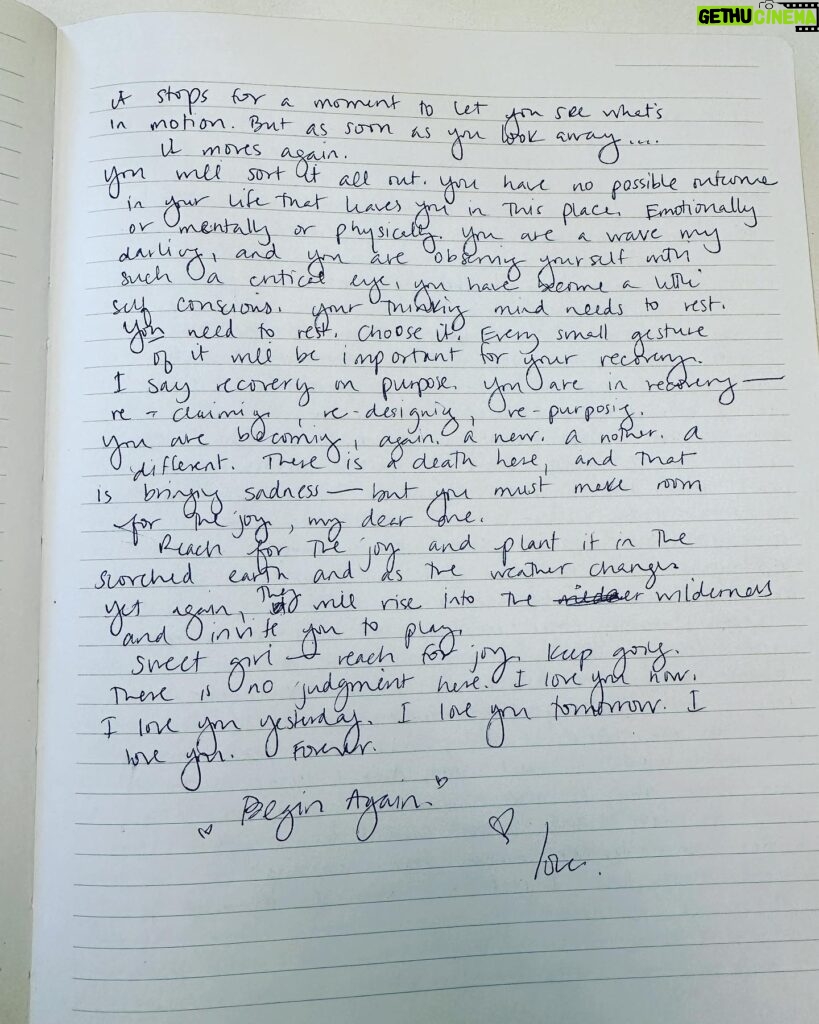 GETHU CINEMA
it stops for a moment to let you see what's
in motion. But as soon as you look away....
it moves again.
you will sort it all out. you have no possible outcome
in your life that leaves you in this place. Emotionally
or mentally or physically. you are a wave my
darling, and you are observing yourself with
such a critical eye, you have become a little
self conscious. your thinking mind needs to rest.
you need to rest. Choose it. Every small gesture
of it will be important for your recovery.
I say recovery on purpose. you are in recovery —
re - claiming, re-designing, re-purposing.
you are becoming, again. a new. a nother. a
different. There is a death here, and that
is bringing sadness — but you must make room
for the joy, my dear one.
Reach for the joy and plant it in the
scorched earth and as the weather changes
yet again, they will rise into the wilderness
and invite you to play.
Sweet girl — reach for joy. Keep going.
There is no judgment here. I love you now.
I love you yesterday. I love you tomorrow. I
love you. Forever.
"Begin Again."
love.